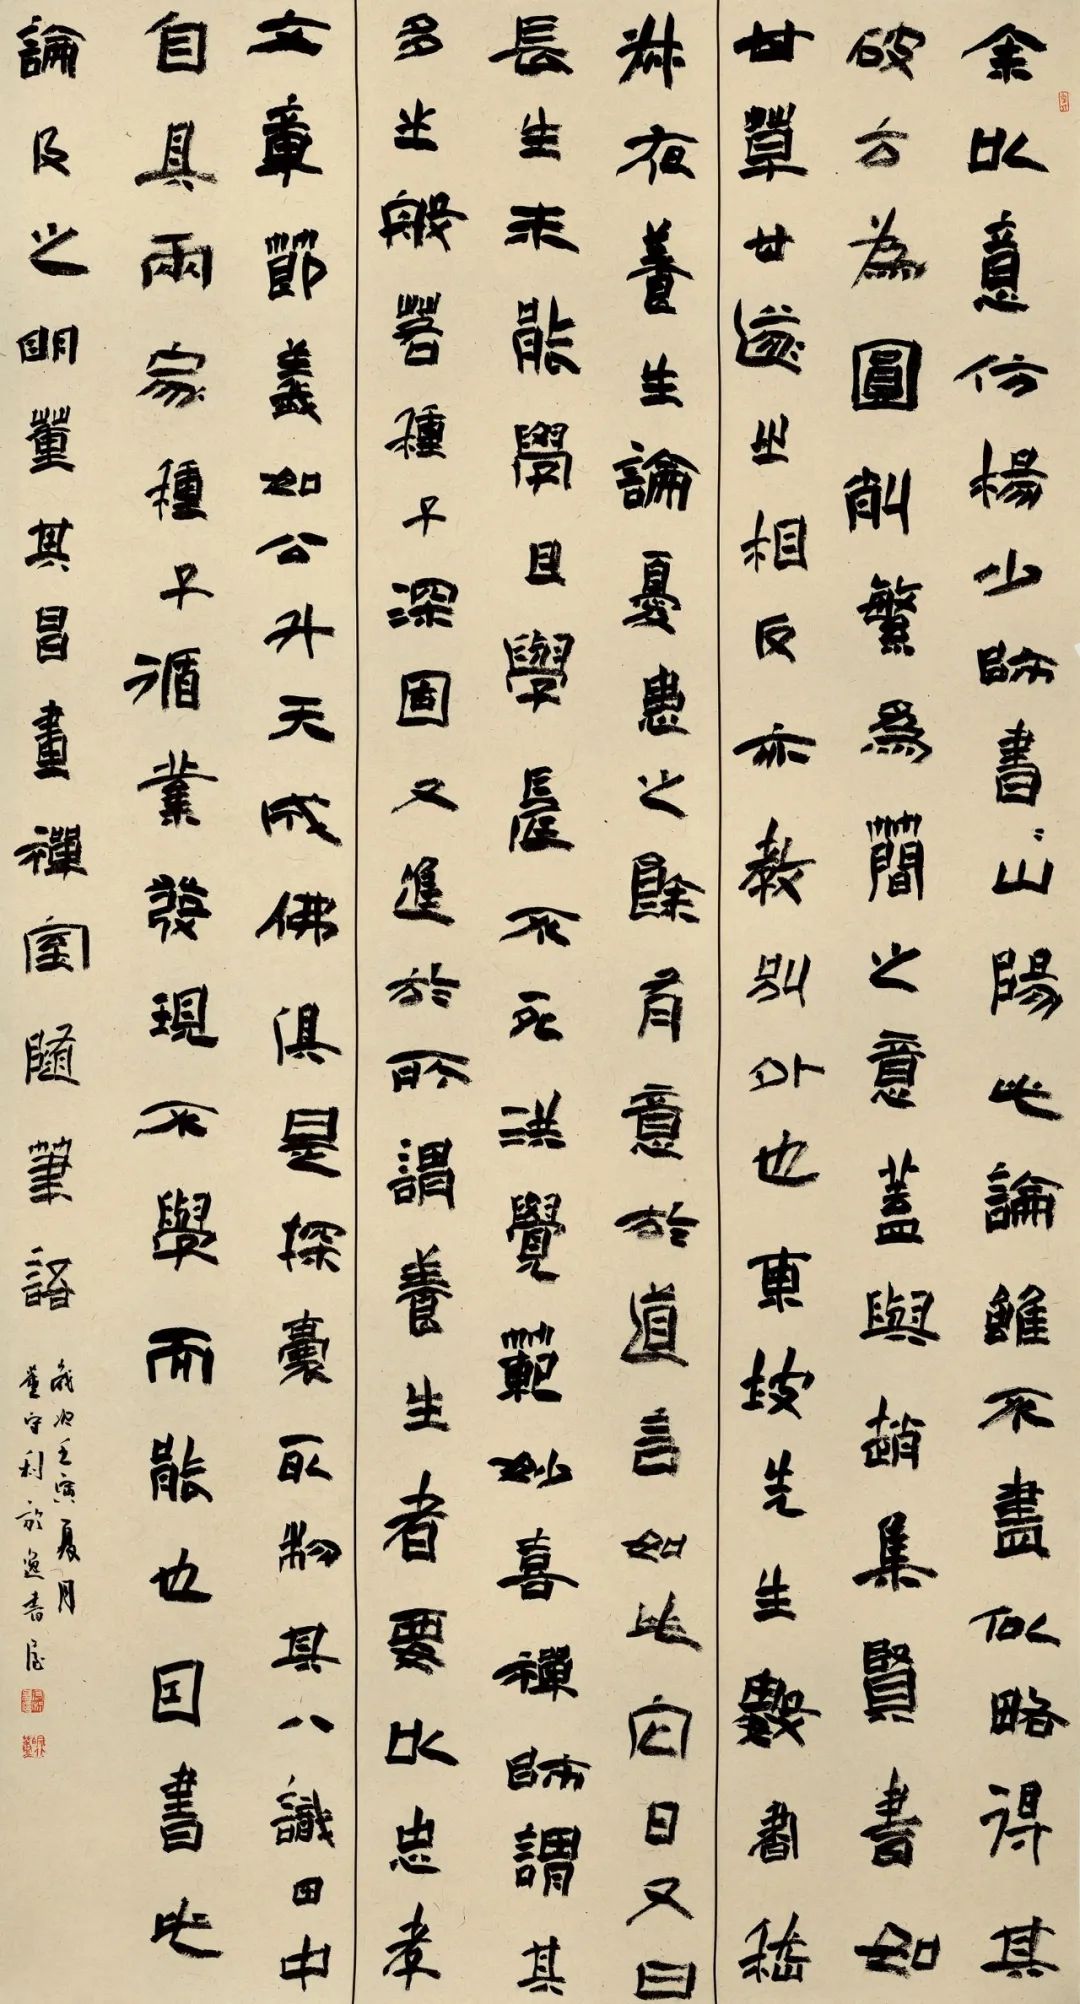 余以意仿楊少師書〻山陽此論雖不盡似略得其
破方為圓削繁為簡之意蓋與趙集賢書如
甘草甘遂之相反亦教別外也東坡先生數書嵇
叔夜養生論憂患之餘有意於道言如此它日又曰
長生未能學且學長不死洪覺範妙喜禪師謂其
多生般若種子深固又進於所謂養生者要以忠孝
文章節義如公升天成佛俱是探囊取物其八識田中
自具兩家種子循業發現不學而能也因書此
論及之明董其昌畫禪室隨筆語
歲次壬寅夏月
董守利於逸書屋